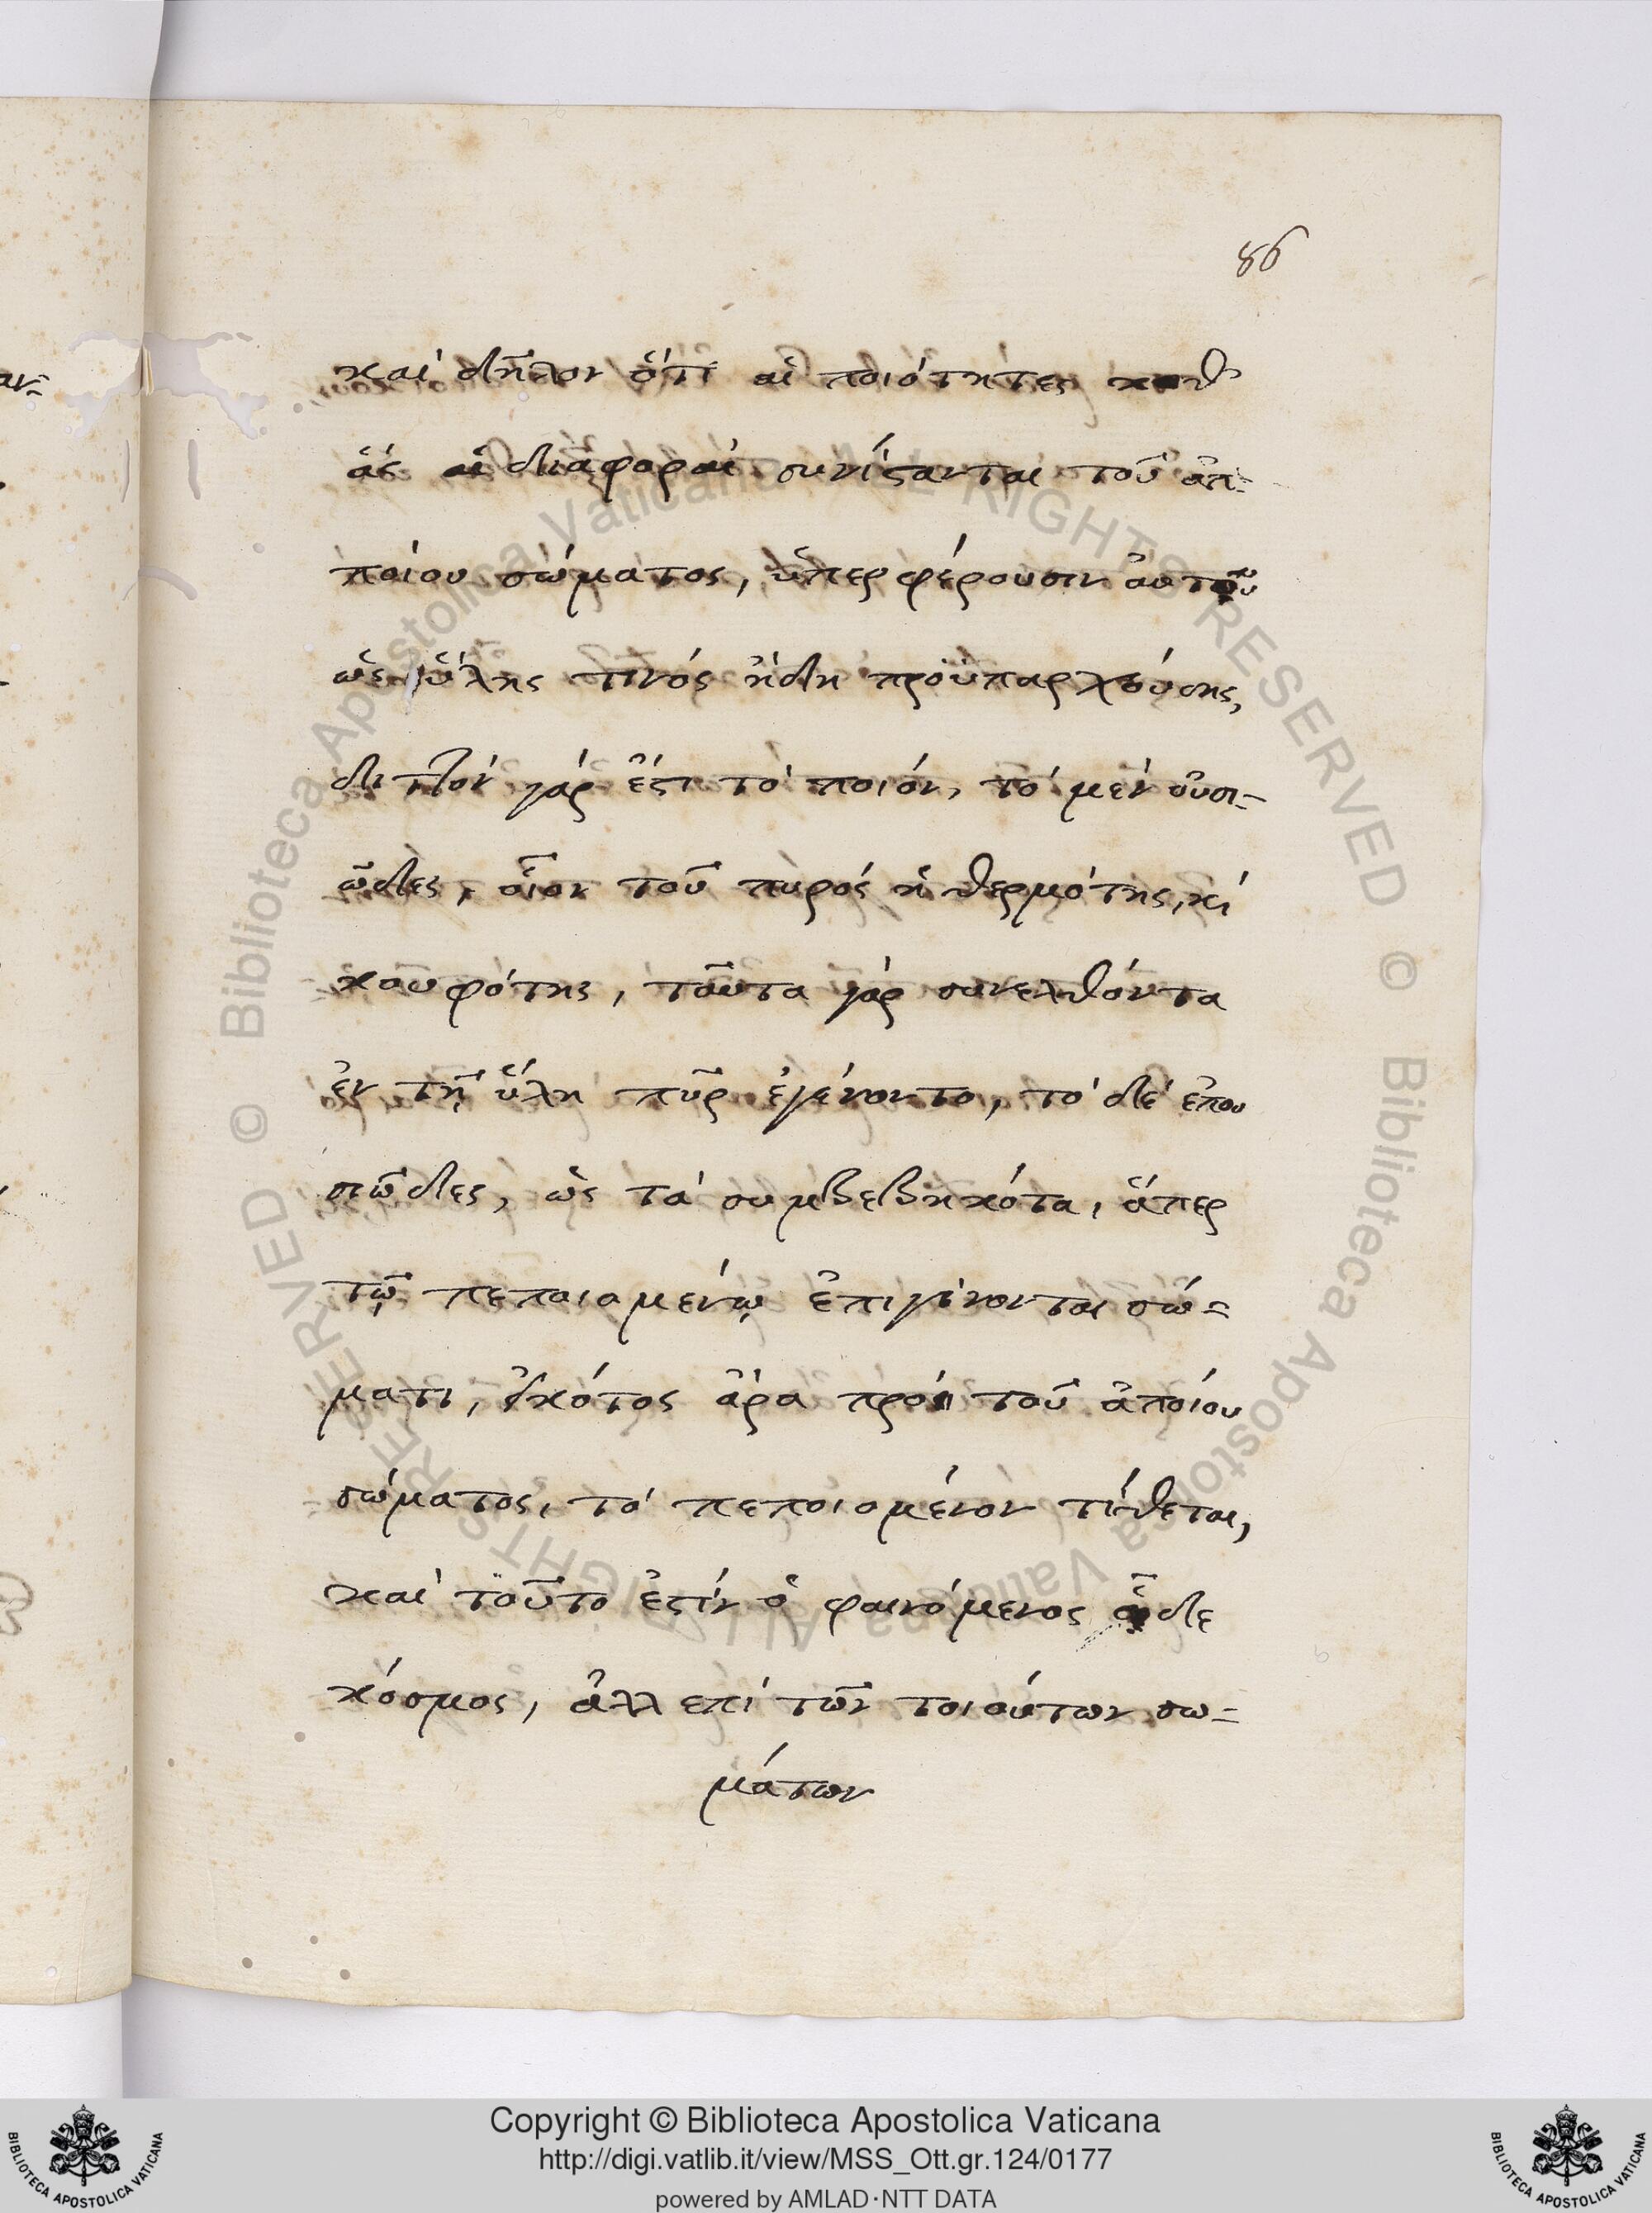 86
καὶ δῆλον ὅτι αἱ ποιότητες καθ'
ἃς αἱ διαφοραὶ συνίστανται τοῦ ἀπ=
ποίου σώματος, ὑπερφέρουσιν αὐτοῦ
ὡς ὕλης τινός ἤδη προϋπαρχούσης,
διττὸν γάρ ἐστι τὸ ποιόν, τὸ μὲν οὐσι=
ῶδες, οἷον τοῦ πυρός ἡ θερμότης, κὶ
κουφότης, ταῦτα γὰρ συνελθόντα
ἐν τῇ ὕλη πῦρ ἐγένοντο, τὸ δέ ἐπου
σιῶδες, ὡς τὰ συμβεβηκότα, ἅπερ
τῷ πεποιομένῳ ἐπιγίνονται σώ=
ματι, εἰκότος ἄρα πρὸ τοῦ ἀποίου
σώματος, τὸ πεποιομένον τίθεται,
καὶ τοῦτο ἐστίν ὁ φαινόμενος ὅδε
κόσμος, ἀλλ ἐπὶ τῶν τοιούτων σω=
μάτων
Copyright © Biblioteca Apostolica Vaticana
http://digi.vatlib.it/view/MSS_Ott.gr.124/0177
powered by AMLAD·NTT DATA
BIBLIOTECA APOSTOLICA VATICANA
BIBLIOTECA APOSTOLICA VATICANA
© Biblioteca Apostolica Vaticana ALL RIGHTS RESERVED
© Biblioteca Apostolica Vaticana ALL RIGHTS RESERVED